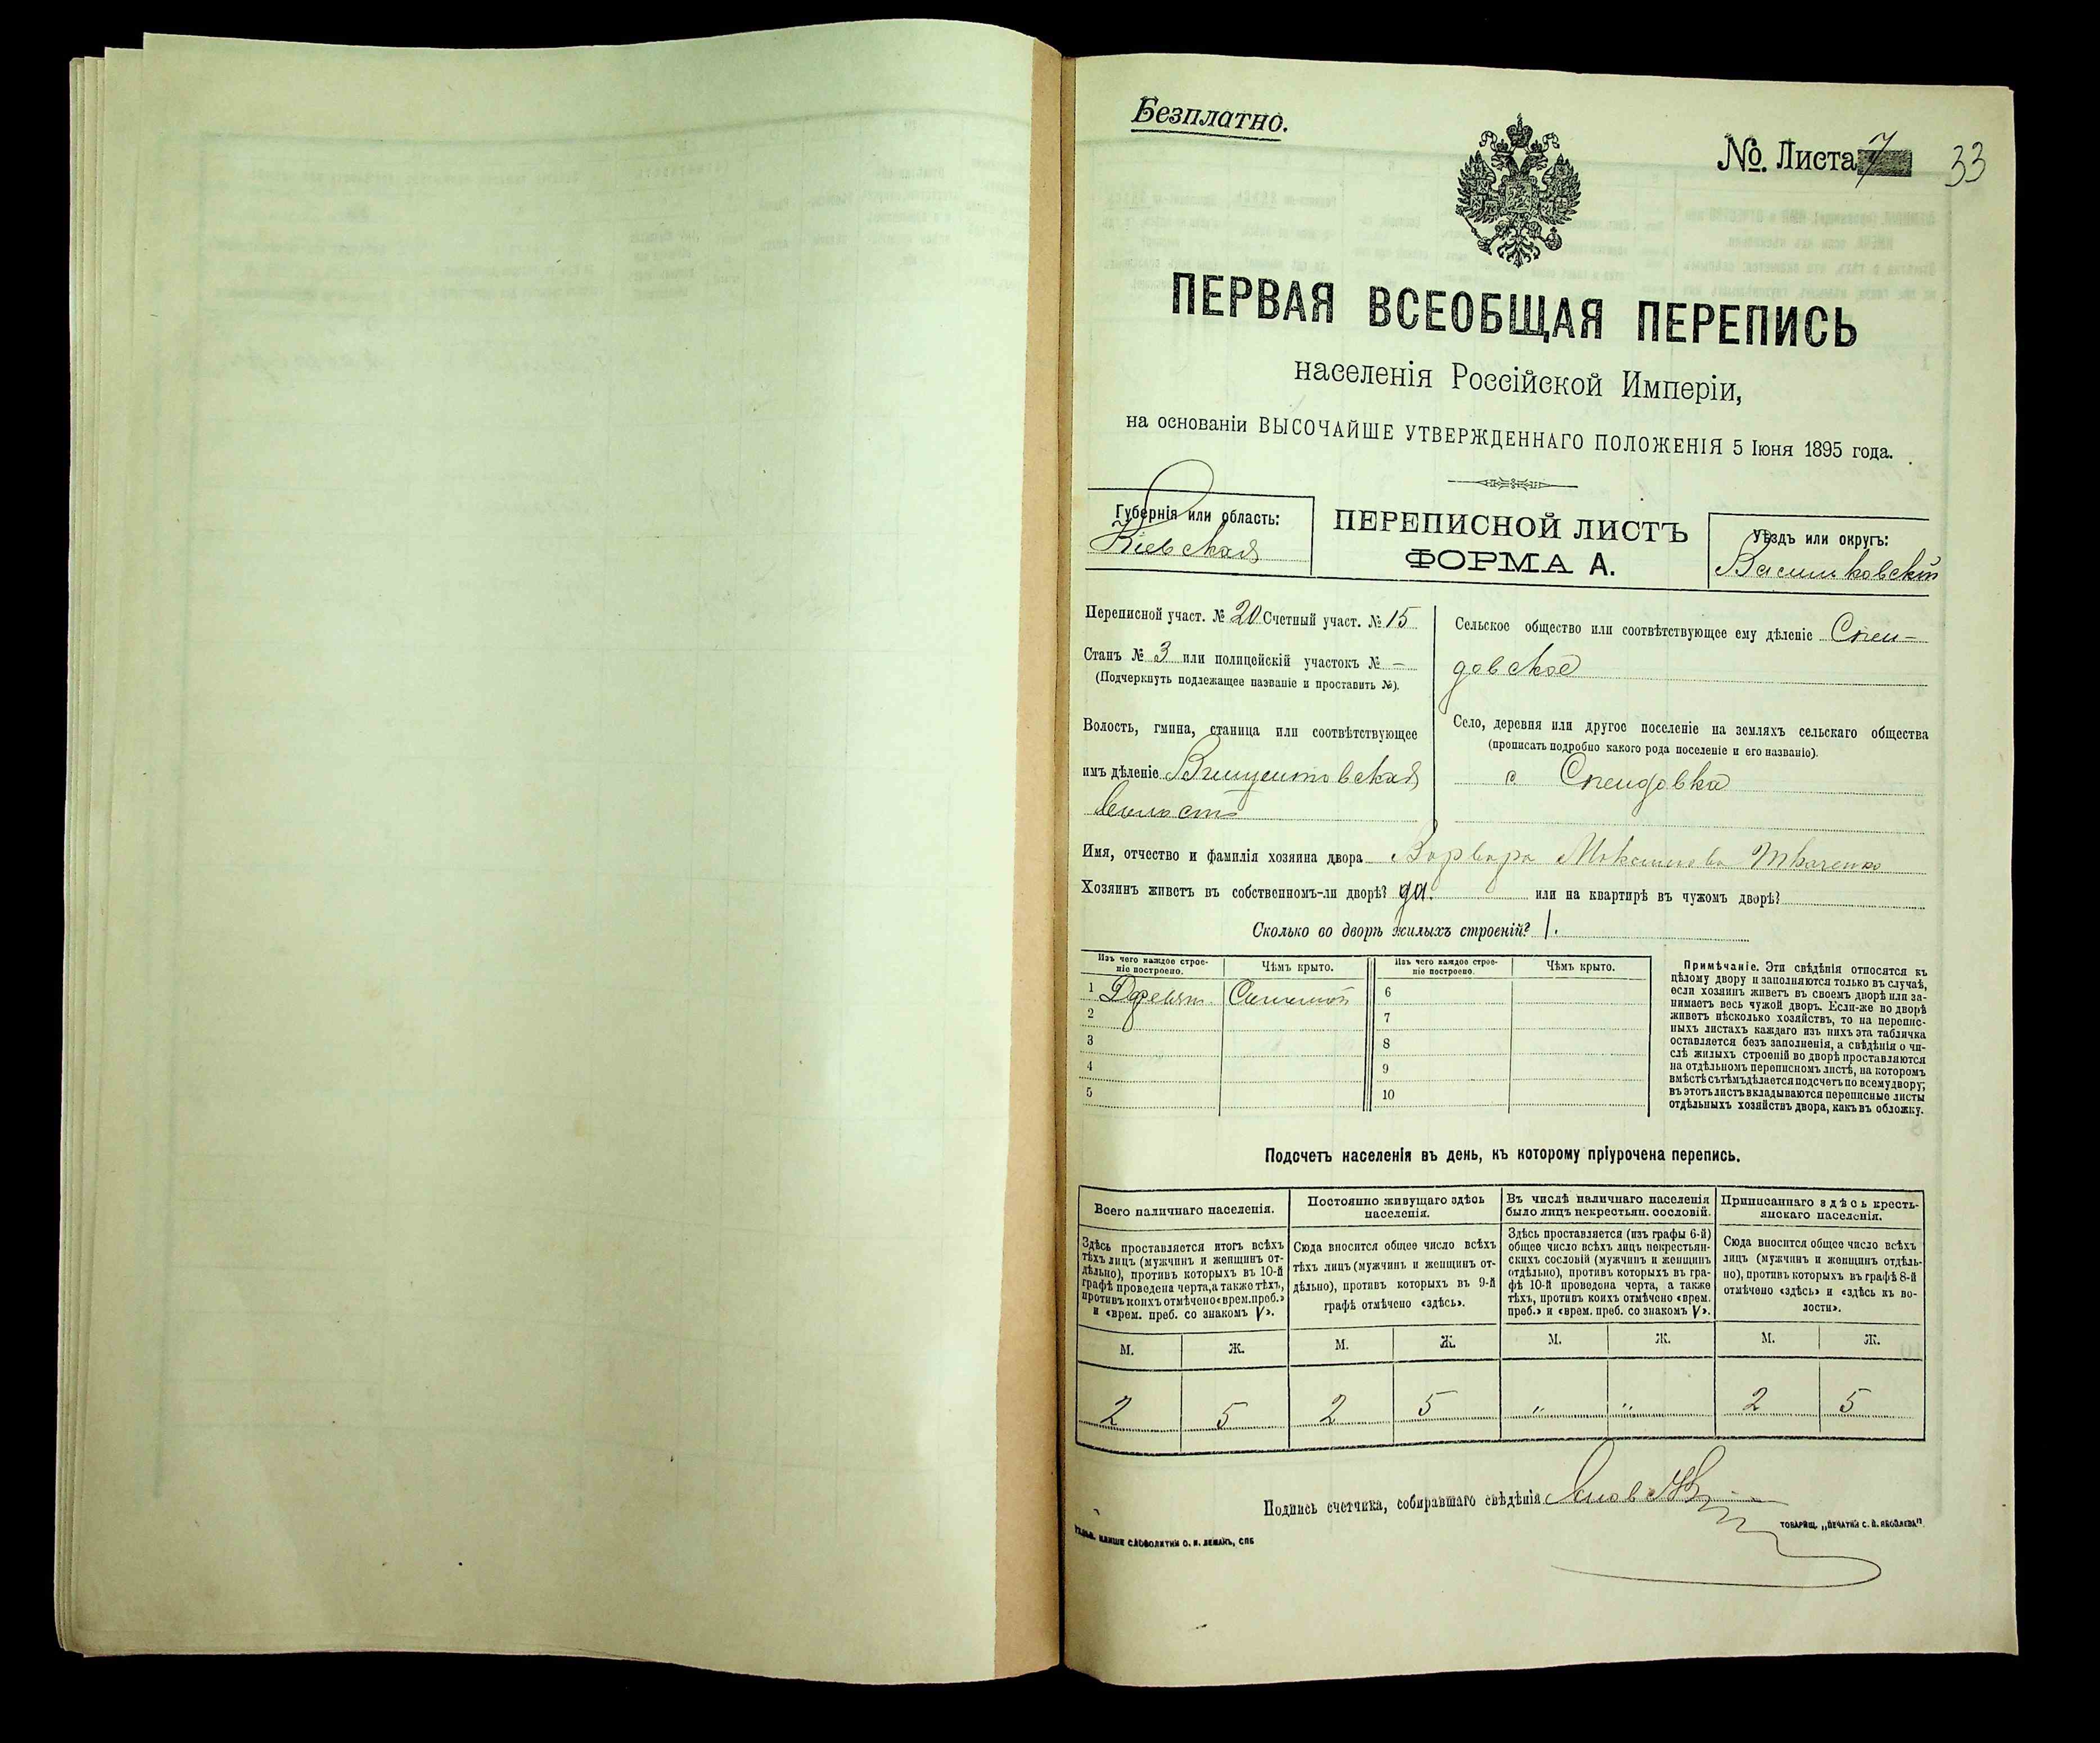 Безплатно.
№ Листа 7 33
ПЕРВАЯ ВСЕОБЩАЯ ПЕРЕПИСЬ
населенія Россійской Имперіи,
на основаніи ВЫСОЧАЙШЕ УТВЕРЖДЕННАГО ПОЛОЖЕНІЯ 5 Іюня 1895 года.
Губернія или область:
Кіевская
ПЕРЕПИСНОЙ ЛИСТЪ
ФОРМА А.
Уѣздъ или округъ:
Васильковскій
Переписной участ. № 20 Счетный участ. № 15
Станъ № 3 или полицейскій участокъ № —
(Подчеркнуть подлежащее названіе и проставить №).
Волость, гмина, станица или соотвѣтствующее
имъ дѣленіе Винцентовская
волость
Сельское общество или соотвѣтствующее ему дѣленіе Спен-
довское
Село, деревня или другое поселеніе на земляхъ сельскаго общества
(прописать подробно какого рода поселеніе и его названіе).
с Спендовка
Имя, отчество и фамилія хозяина двора Варвара Максимова Ткаченко
Хозяинъ живетъ въ собственномъ-ли дворѣ? да. или на квартирѣ въ чужомъ дворѣ?
Сколько во дворѣ жилыхъ строеній? 1.
Изъ чего каждое строе-
ніе построено.
Чѣмъ крыто.
Изъ чего каждое строе-
ніе построено.
Чѣмъ крыто.
1 Деревян. Соломой 6
2 7
3 8
4 9
5 10
Примѣчаніе. Эти свѣдѣнія относятся къ
цѣлому двору и заполняются только въ случаѣ,
если хозяинъ живетъ въ своемъ дворѣ или за-
нимаетъ весь чужой дворъ. Если-же во дворѣ
живетъ нѣсколько хозяйствъ, то на перепис-
ныхъ листахъ каждаго изъ нихъ эта табличка
оставляется безъ заполненія, а свѣдѣнія о чи-
слѣ жилыхъ строеній во дворѣ проставляются
на отдѣльномъ переписномъ листѣ, на которомъ
вмѣстѣ съ тѣмъ дѣлается подсчетъ по всему двору;
въ этотъ листъ вкладываются переписные листы
отдѣльныхъ хозяйствъ двора, какъ въ обложку.
Подсчетъ населенія въ день, къ которому пріурочена перепись.
Всего наличнаго населенія.
Здѣсь проставляется итогъ всѣхъ
тѣхъ лицъ (мужчинъ и женщинъ от-
дѣльно), противъ которыхъ въ 10-й
графѣ проведена черта, а также тѣхъ,
противъ коихъ отмѣчено «врем. преб.»
и «врем. преб. со знакомъ V».
Постоянно живущаго здѣсь
населенія.
Сюда вносится общее число всѣхъ
тѣхъ лицъ (мужчинъ и женщинъ от-
дѣльно), противъ которыхъ въ 9-й
графѣ отмѣчено «здѣсь».
Въ числѣ наличнаго населенія
было лицъ некрестьян. сословій.
Здѣсь проставляется (изъ графы 6-й)
общее число всѣхъ лицъ некрестьян-
скихъ сословій (мужчинъ и женщинъ
отдѣльно), противъ которыхъ въ гра-
фѣ 10-й проведена черта, а также
тѣхъ, противъ коихъ отмѣчено «врем.
преб.» и «врем. преб. со знакомъ V».
Приписаннаго здѣсь кресть-
янскаго населенія.
Сюда вносится общее число всѣхъ
лицъ (мужчинъ и женщинъ отдѣль-
но), противъ которыхъ въ графѣ 8-й
отмѣчено «здѣсь» и «здѣсь къ во-
лости».
М. Ж. М. Ж. М. Ж. М. Ж.
2 5 2 5 " " 2 5
Подпись счетчика, собиравшаго свѣдѣнія
КЛИШЕ СЛОВОЛИТНИ О. И. ЛЕМАНЪ, СПБ
ТОВАРИЩ. „ПЕЧАТНИ С. П. ЯКОВЛЕВА".